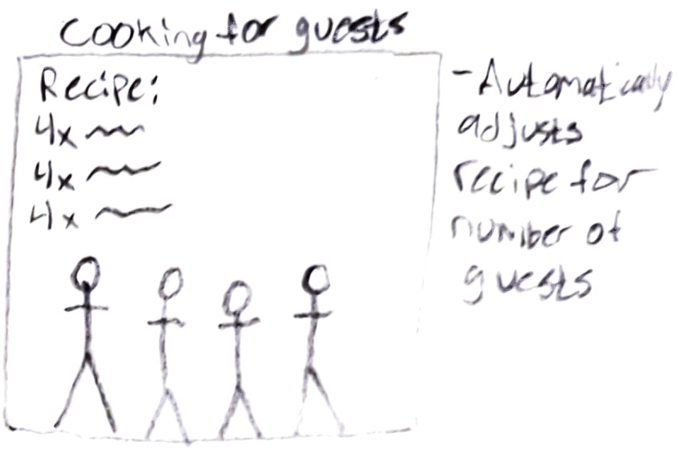 Cooking for guests
Recipe:
4x
4x
4x
-Automatically
adjusts
recipe for
number of
guests